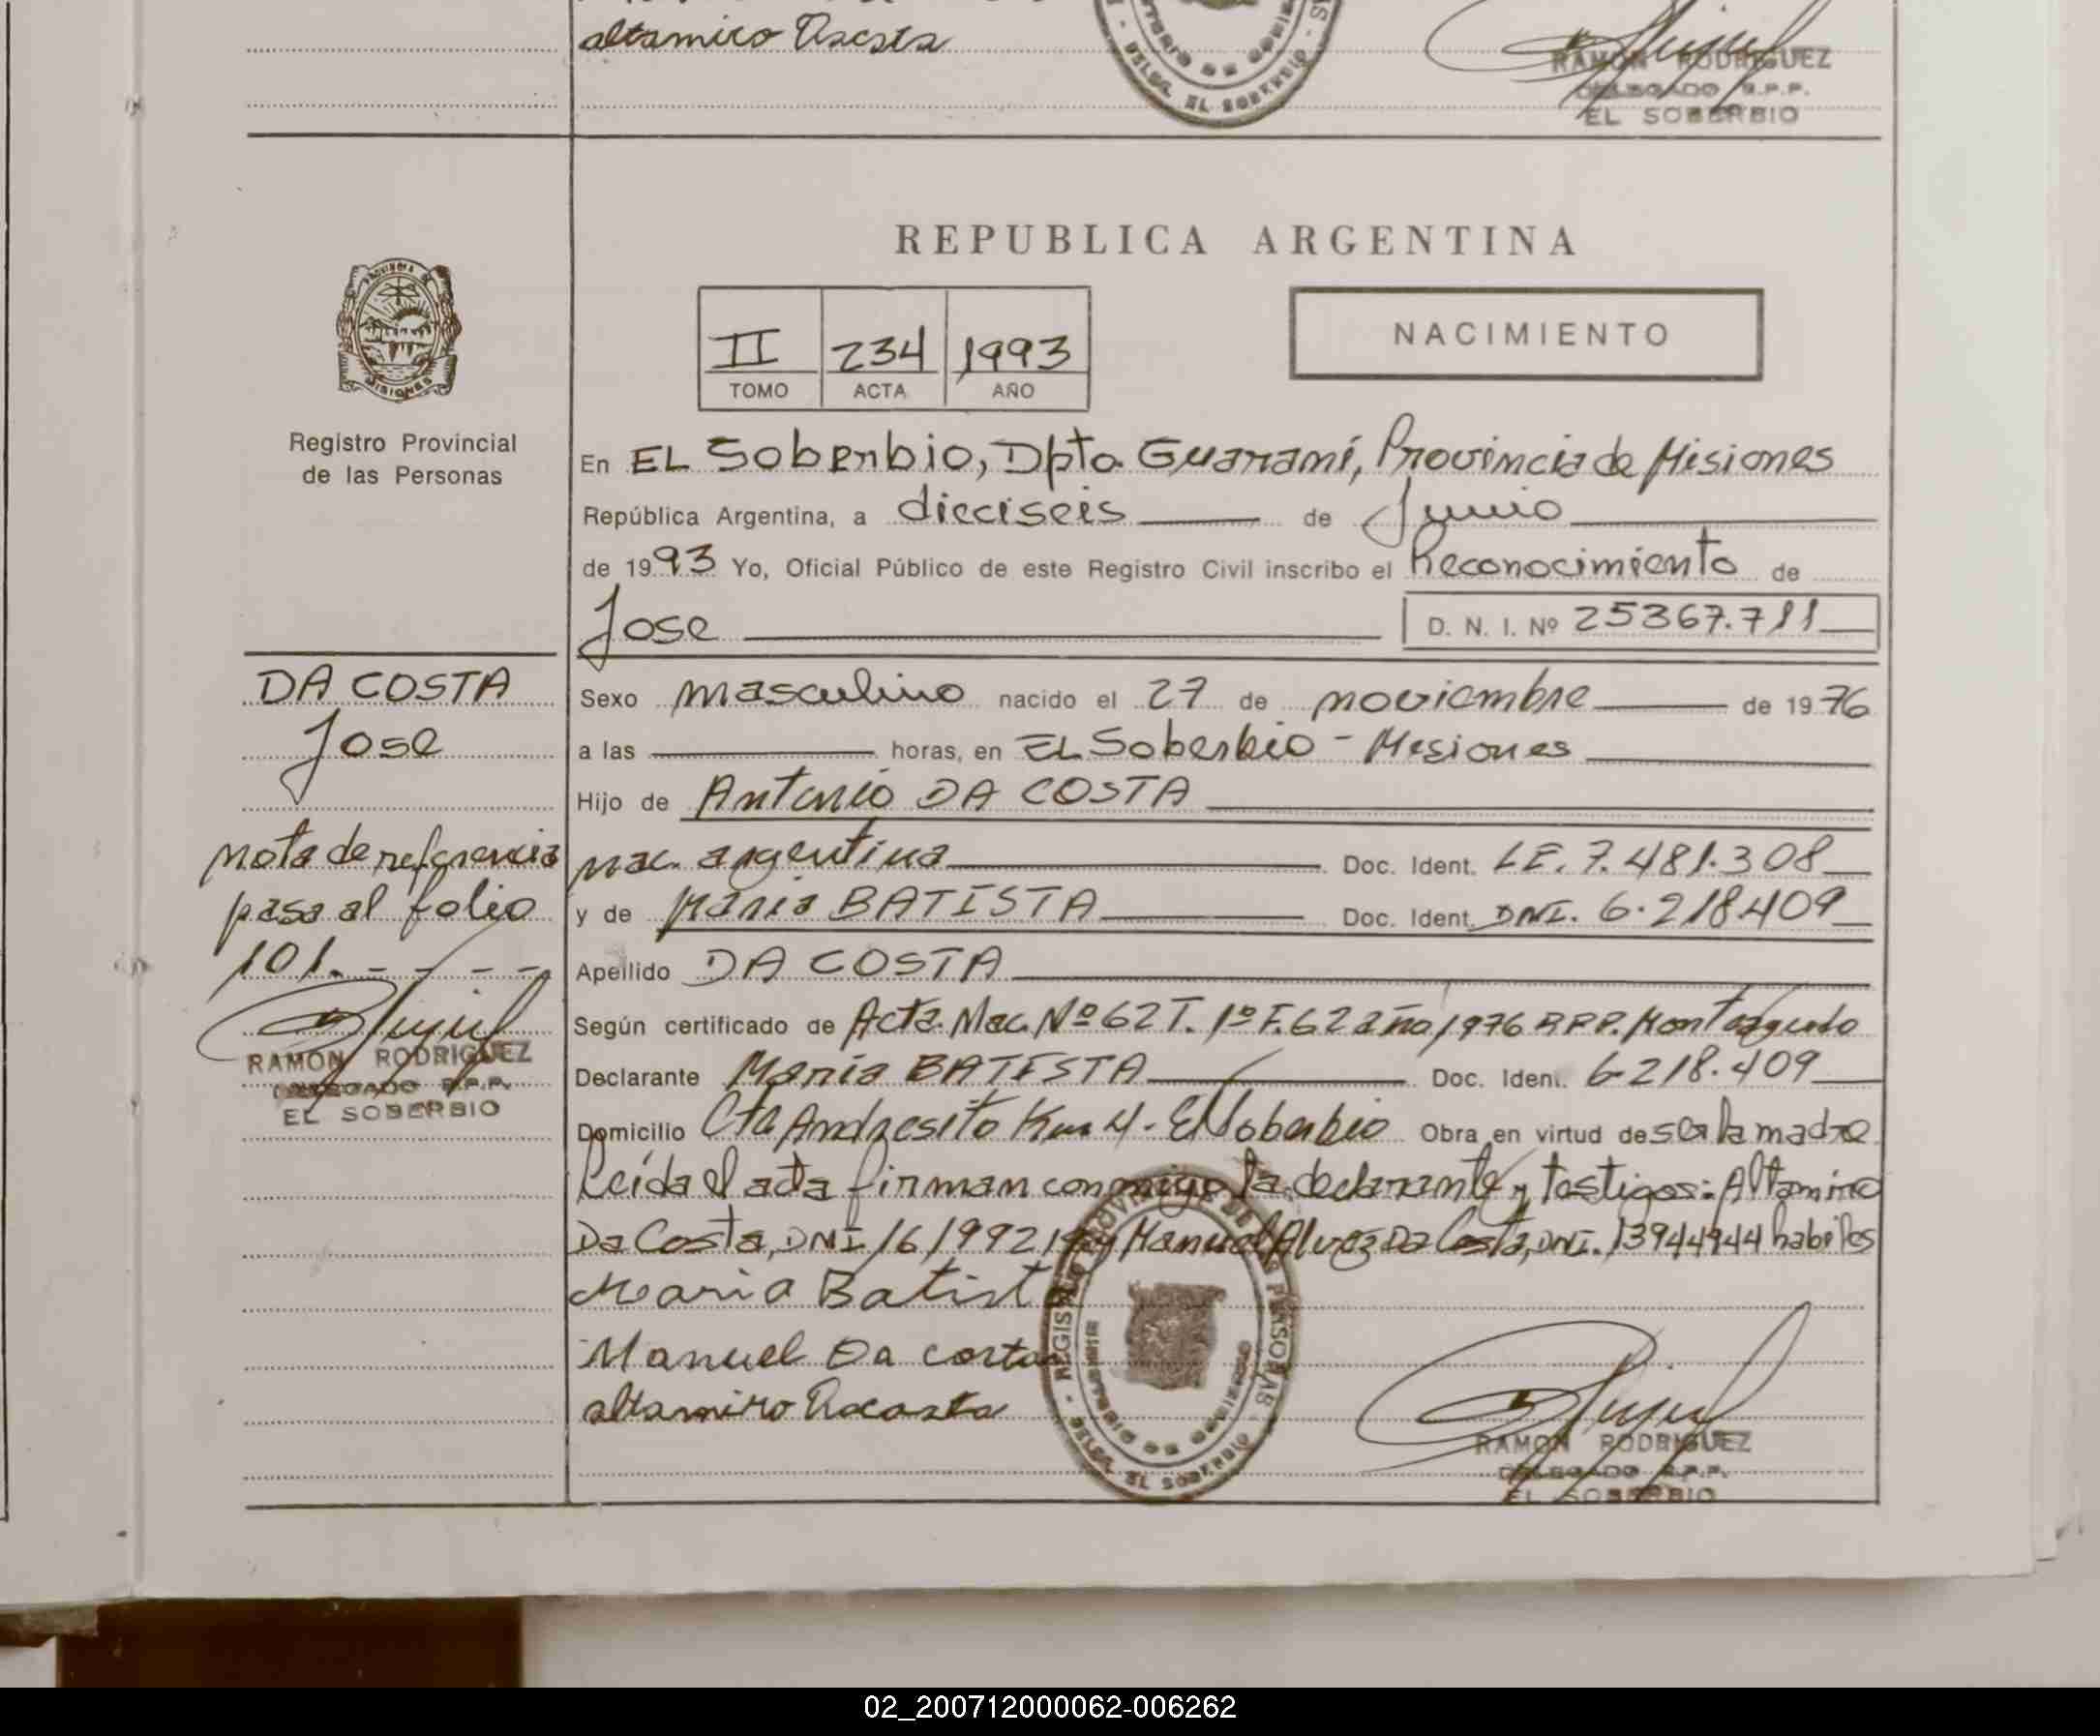 altamiro Dacosta
RAMON RODRIGUEZ
DELEGADO R.P.P.
EL SOBERBIO
REPUBLICA ARGENTINA
II 234 1993
TOMO ACTA AÑO
NACIMIENTO
Registro Provincial
de las Personas
En EL Soberbio, Dpto. Guaraní, Provincia de Misiones
República Argentina, a dieciseis de Junio
de 1993 Yo, Oficial Público de este Registro Civil inscribo el Reconocimiento de
Jose D. N. I. Nº 25367.711
DA COSTA
Jose
Sexo masculino nacido el 27 de noviembre de 1976
a las horas, en EL Soberbio - Misiones
Hijo de Antonio DA COSTA
nac. argentina Doc. Ident. LE. 7.481.308
y de Maria BATISTA Doc. Ident. DNI. 6.218.409
Apellido DA COSTA
Nota de referencia
pasa al folio
101.
RAMON RODRIGUEZ
DELEGADO R.P.P.
EL SOBERBIO
Según certificado de Acta. Nac. Nº 62 T. 1º F. 62 año 1976 R.P.P. Monteagudo
Declarante Maria BATISTA Doc. Ident. 6.218.409
Domicilio Cta Andresito Km 4. El Soberbio Obra en virtud de ser la madre
Leida el acta firman conmigo la declarante y testigos: Altamiro
Da Costa, DNI y Manuel Alvez Da Costa, DNI. 13944944 habiles
Maria Batist
Manuel Da costa
altamiro Dacosta
REGISTRO PROVINCIAL DE LAS PERSONAS
MINISTERIO DE GOBIERNO
DELEG. EL SOBERBIO
RAMON RODRIGUEZ
DELEGADO R.P.P.
EL SOBERBIO
02_200712000062-006262